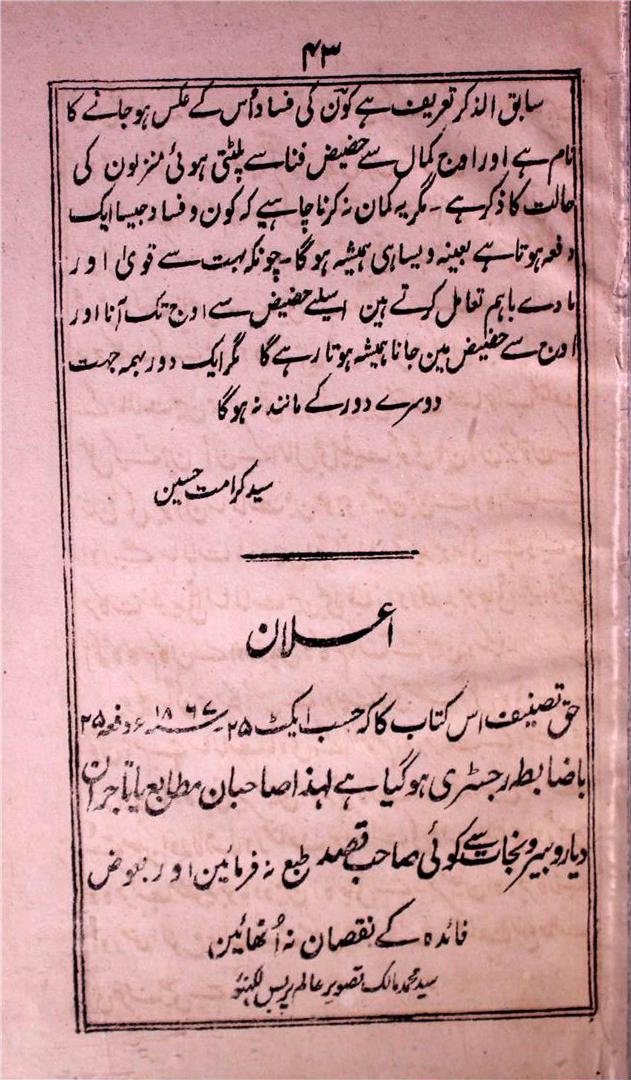 ۴۳
سابق الذکر تعریف ہے کون کی فساد اُس کے عکس ہو جانے کا
نام ہے اور اوج کمال سے حضیض فنا سے پلٹتی ہوئی منزلون کی
حالت کا ذکر ہے ۔ مگر یہ گمان نہ کرنا چاہیے کہ کون و فساد جیسا ایک
دفعہ ہوتا ہے بعینہ ویسا ہی ہمیشہ ہوگا ۔ چونکہ بہت سے قویٰ اور
مادے باہم تعامل کرتے ہین اسلیے حضیض سے اوج تک آنا اور
اوج سے حضیض مین جانا ہمیشہ ہوتا رہے گا مگر ایک دور بہمہ جہت
دوسرے دور کے مانند نہ ہوگا
سید کرامت حسین
اعلان
حق تصنیف اس کتاب کا کہ حسب ایکٹ ۲۵ سنہ ۱۸۶۷ء دفعہ ۲۵
باضابطہ رجسٹری ہوگیا ہے لہذا صاحبان مطابع یا تاجران
دیار و سے کوئی صاحب قصد طبع نہ فرمائین اور بعوض
فائدہ کے نقصان نہ اُٹھائین
سید محمد مالک تصویر عالم پریس لکھنؤ